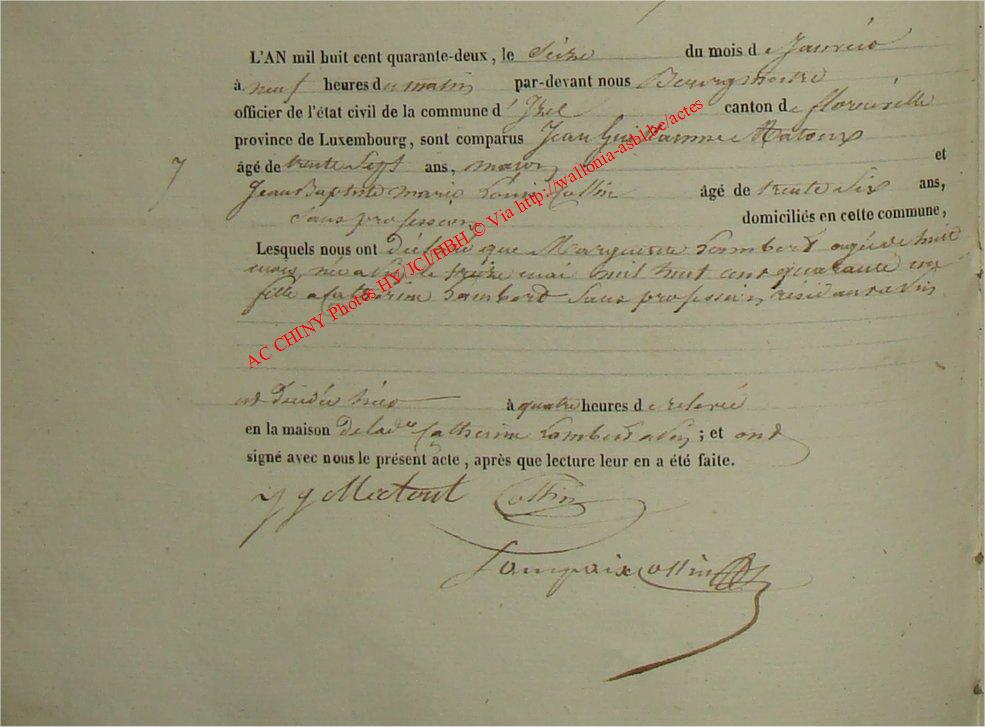 L'AN mil huit cent quarante-deux, le Seize du mois de Janvier
à neuf heures du matin par-devant nous Bourgmestre
officier de l'état civil de la commune d' Izel canton de florenville
province de Luxembourg, sont comparus Jean Guillaume
7 âgé de trente Sept ans, maçon et
Jean Baptiste marie Louis Collin âgé de trente Six ans,
Sans profession domiciliés en cette commune,
Lesquels nous ont déclaré que Marguerite Lambert agée de huit
mois, née a le treize mai mil huit cent quarante un
fille a Catherine Lambert Sans profession, résidant a
est décédée hier à quatre heures de relevée
en la maison de lad. Catherine Lambert a ; et ont
signé avec nous le présent acte, après que lecture leur en a été faite.
Collin
Lampaix Collin
AC CHINY Photos HY JCI/HBH © Via http://wallonia-asbl.be/actes